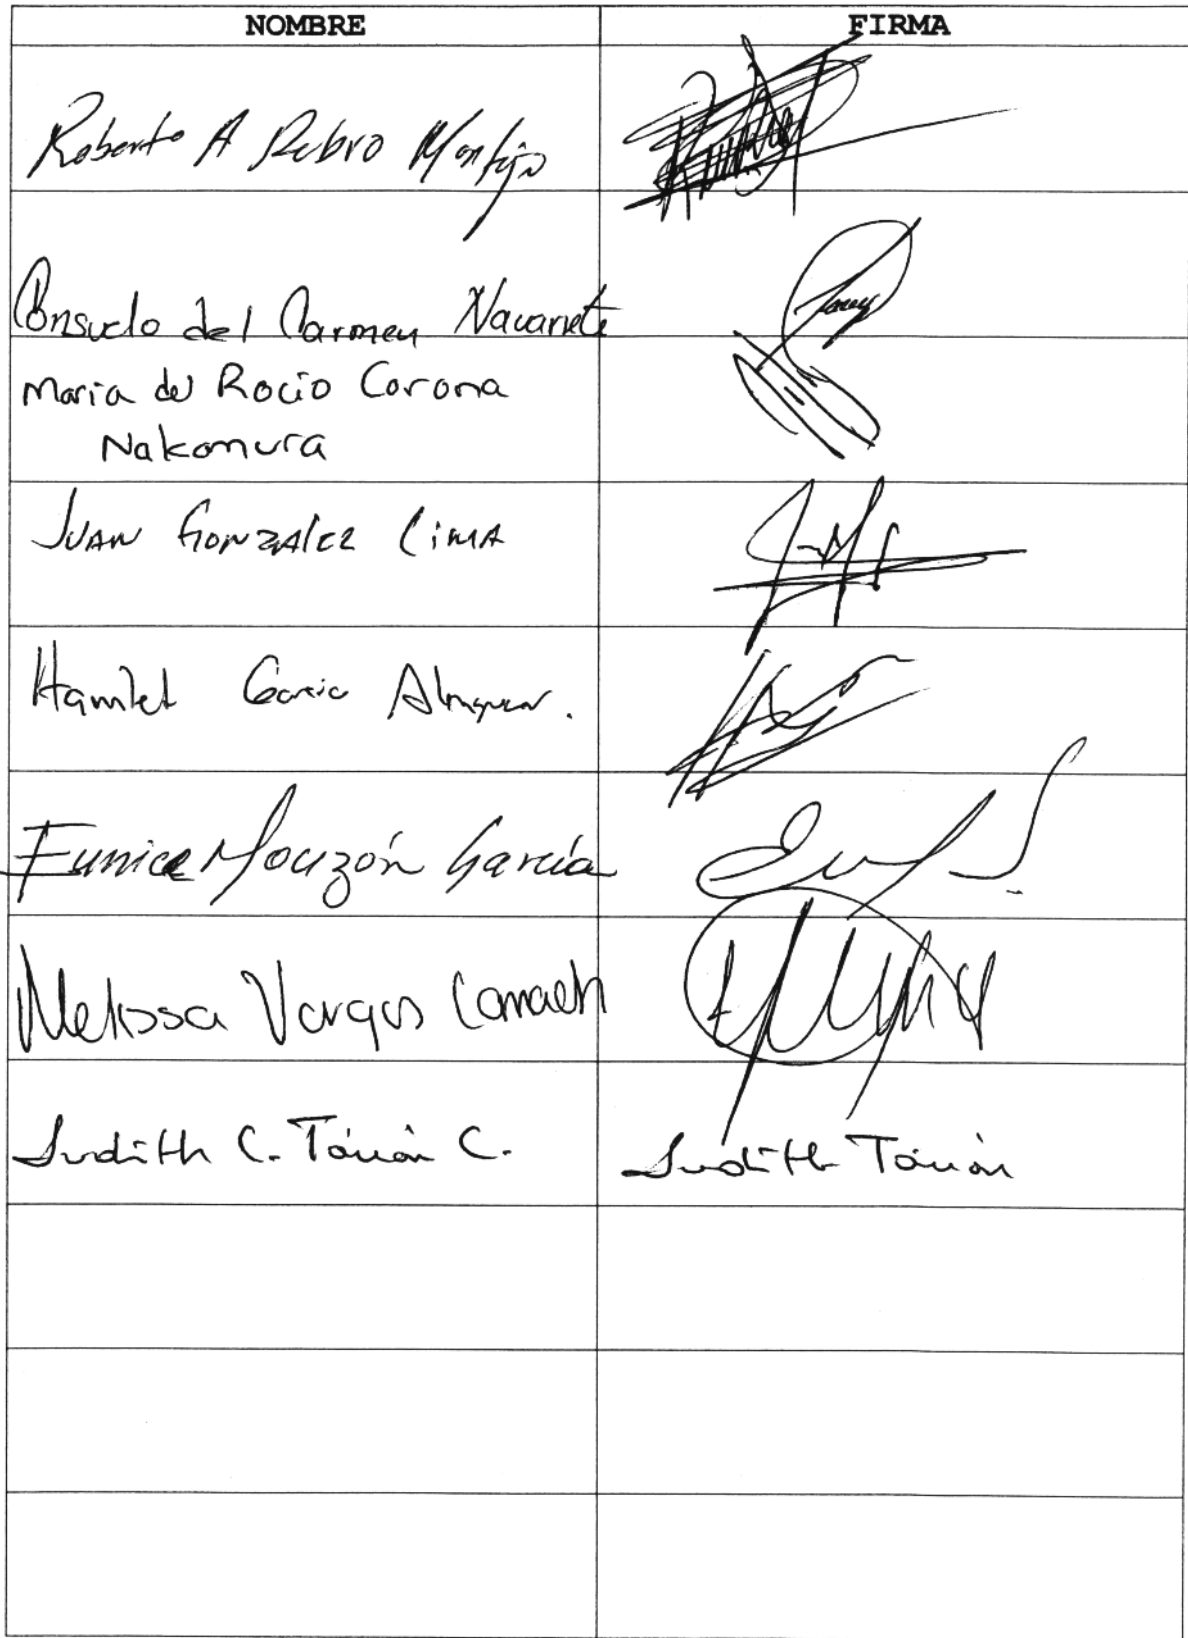 NOMBRE FIRMA
Roberto A Rubio Montijo
Consuelo del Carmen Navarrete
Maria del Rocio Corona
Nakamura
JUAN GONZALEZ LIMA
Hamlet Garcia
Eunice Monzón García
Melissa Vargas
Judith C. Tánori C. Judith Tánori